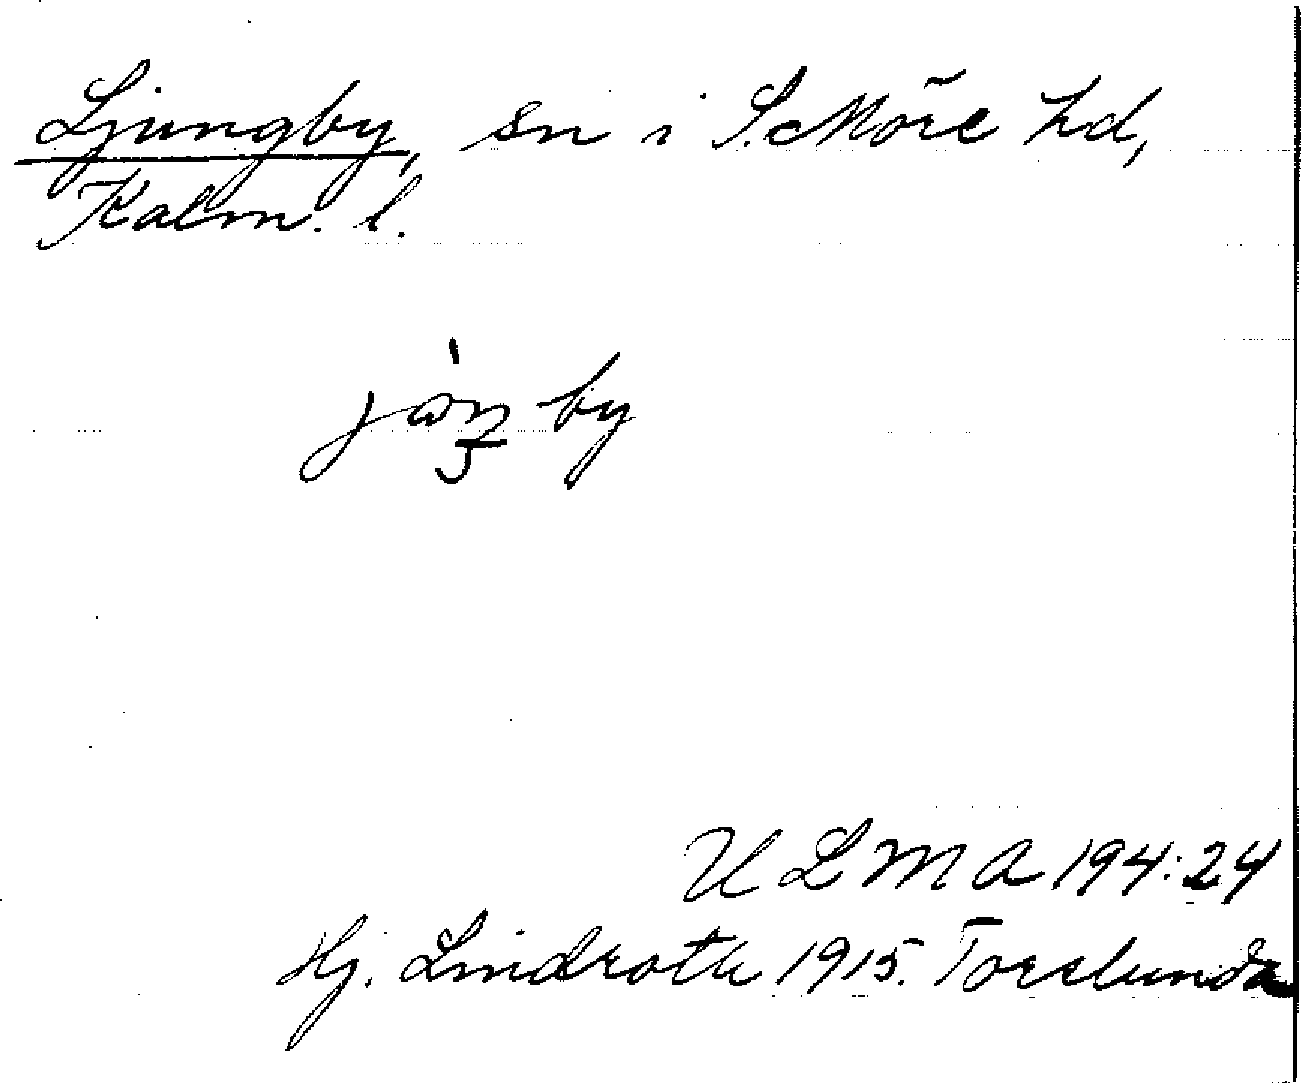 Ljungby, sn i S. Möre hd,
Kalm. l.
jɷ̀ŋby
ULMA 194:24
Hj. Lindroth 1915. Torslunda